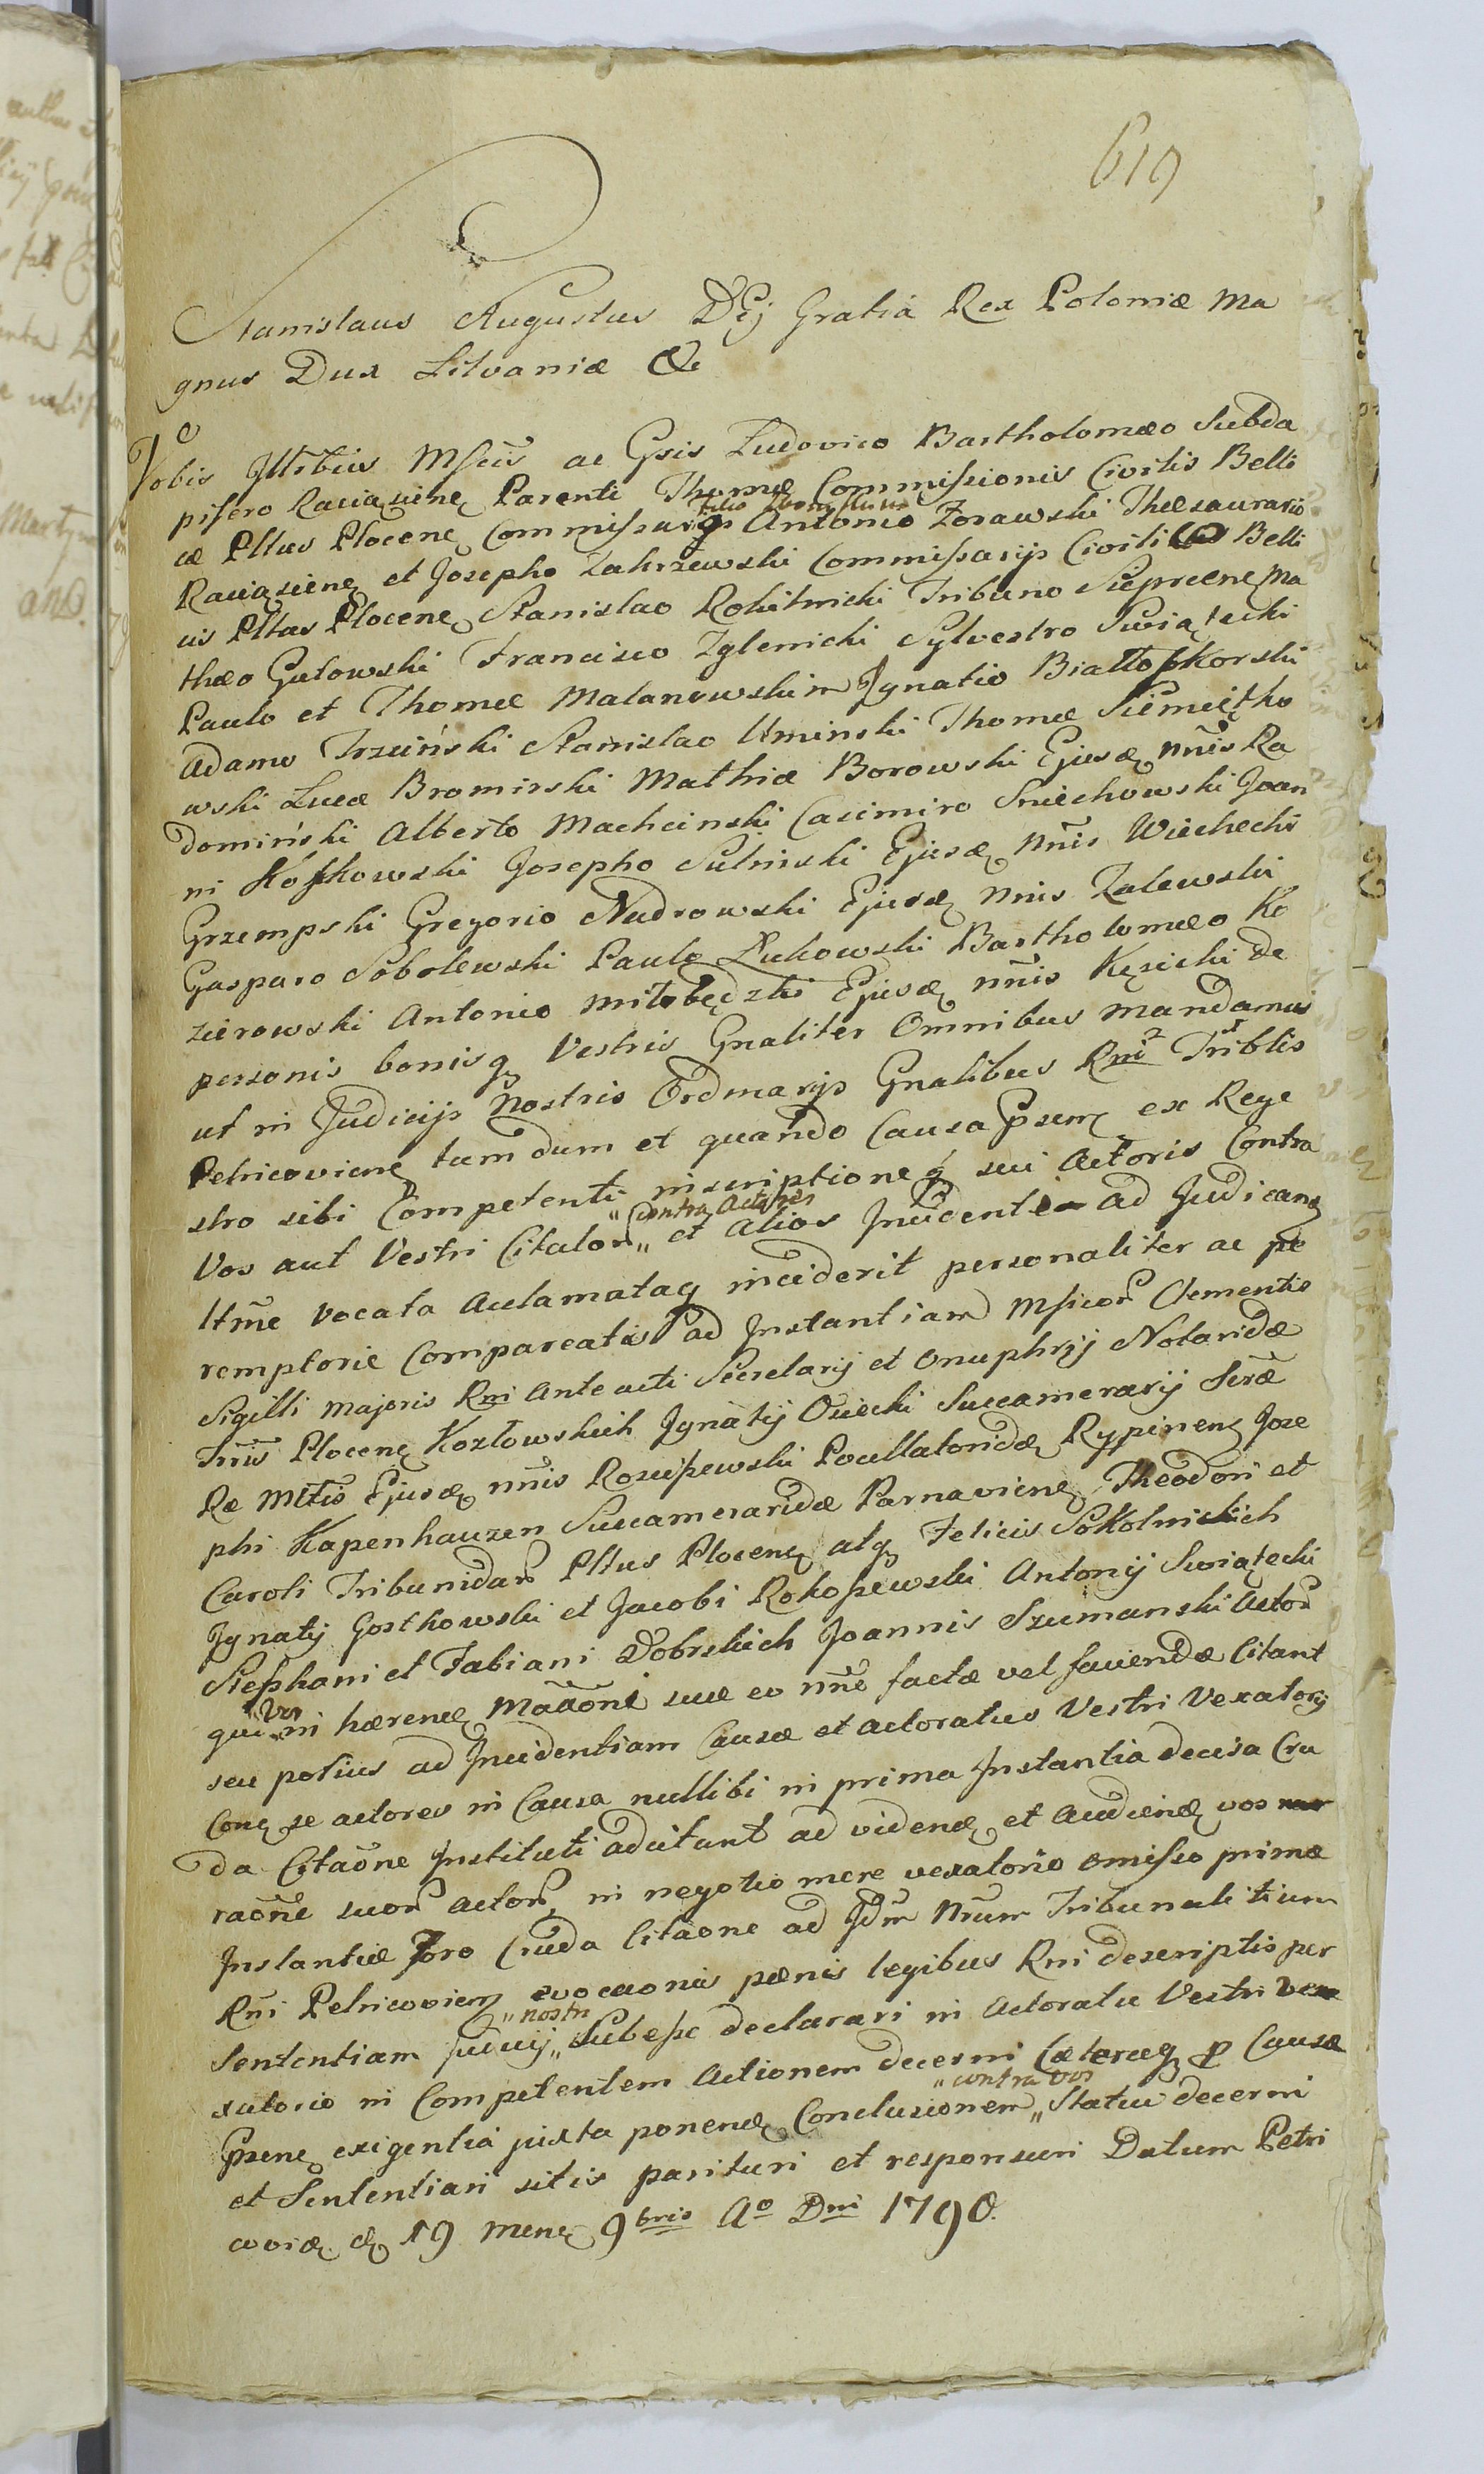 619
Stanislaus Augustus DEj Gratiá Rex Poloniæ Ma
gnus Dux Litvaniæ &c
Vobis Jllrbus Mfcis ac Gsis Ludovico Bartholomæo Subda
pifero Raciązieneȝ Parenti Thomæ Commissionis Civilis Belli
Filio
cæ Pltus Plocenȝ Commissarijs Antonio Zorawski Thesaurario
Raciązienȝ et Josepho Zakrzewski Commissarijs Civili Belli
cis Pltus Plocenȝ Stanislao Rokitnicki Tribuno Sieprcenȝ Ma
thæo Gutowski Francisco Zglenicki Sylvestro Swiątecki
Paulo et Thomæ Malanowskim Jgnatio Białłoskorski
Adamo Trzciński Stanislao Uminski Thomæ Siemiętko
wski Lucæ Bromirski Mathiæ Borowski Ejusdȝ nñis Ra
domiński Alberto Machcinski Casimiro Sniechowski Joan
ni Kosskowski Josepho Sulinski Ejusdȝ Nñis Wiechecki
Grzempski Gregorio Nudrowski Ejusdȝ Nnis Zalewski
Gasparo Sobolewski Paulo Łukowski Bartholomæo Ko
zierowski Antonio Miłobędzki Ejusdȝ nñis Kęsicki de
personis bonisqȝ Vestris Gnaliter Omnibus mandamus
ut in Judicijs Nostris Ordinarijs Gnalibus Rni Triblis
Petricovienȝ tum dum et quando Causa Psens ex Rege
stro sibi Competenti inscriptioneqȝ sui Actoris Contra
"Contra Actores
Vos aut Vestri Citator" et Alios Jncidenti ad Judicanȝ
Itmé vocata Aclamataqȝ inciderit personaliter ac pe
remptorie Compareatis ad Jnstantiam Mficor Clementis
Sigilli Majoris Rni Ante acti Secretarij et Onuphrij Notaridæ
Tñis Plocenȝ Kozłowskich Jgnatij Osiecki Succamerarij Sæ
Ræ Mttis Ejusdȝ nñis Rosciszewski Pocillatoridæ Rypinenȝ Jose
phi Kapenhauzen Succameraridæ Parnavienȝ Theodori et
Caroli Tribunidar Pltus Plocenȝ atqȝ Felicis Sokolnickich
Jgnatij Gostkowski et Jacobi Rokoszewski Antonij Swiątecki
Stephani et Fabiani Dobrskich Joannis Szumanski Actor
"Vos
qui "in hærenȝ Mãaõni suæ eo nñe factæ vel faciendæ Citant
seu potius ad Jncidentiam Causæ et actoratus Vestri Vexatorij
Conȝ se actores in Causa nullibi in prima Jnstantia decisa Cru
da Citaõne Jnstituti adcitant ad videndȝ et Audiendȝ vos
raõne suor actor, in negotio mere vexatorio omisso primæ
Jnstantiæ Foro Cruda Citaone ad Jdm Nrum Tribunalitium
Rni Petricovienȝ evocaonis pænis legibus Rni descriptis per
"nostri
Sententiam Judicij" Subesse declarari in Actoratu Vestri vexa
xatorio in Competentem Actionem decerni Cæteraqȝ p Causæ
"contra vos
Psens exigentiá juxta ponendȝ Conclusionem" Statui decerni
et Sententiari sitis parituri et responsuri Datum Petri
coviæ dȝ 19 Mensȝ 9bris Ao Dni 1790.